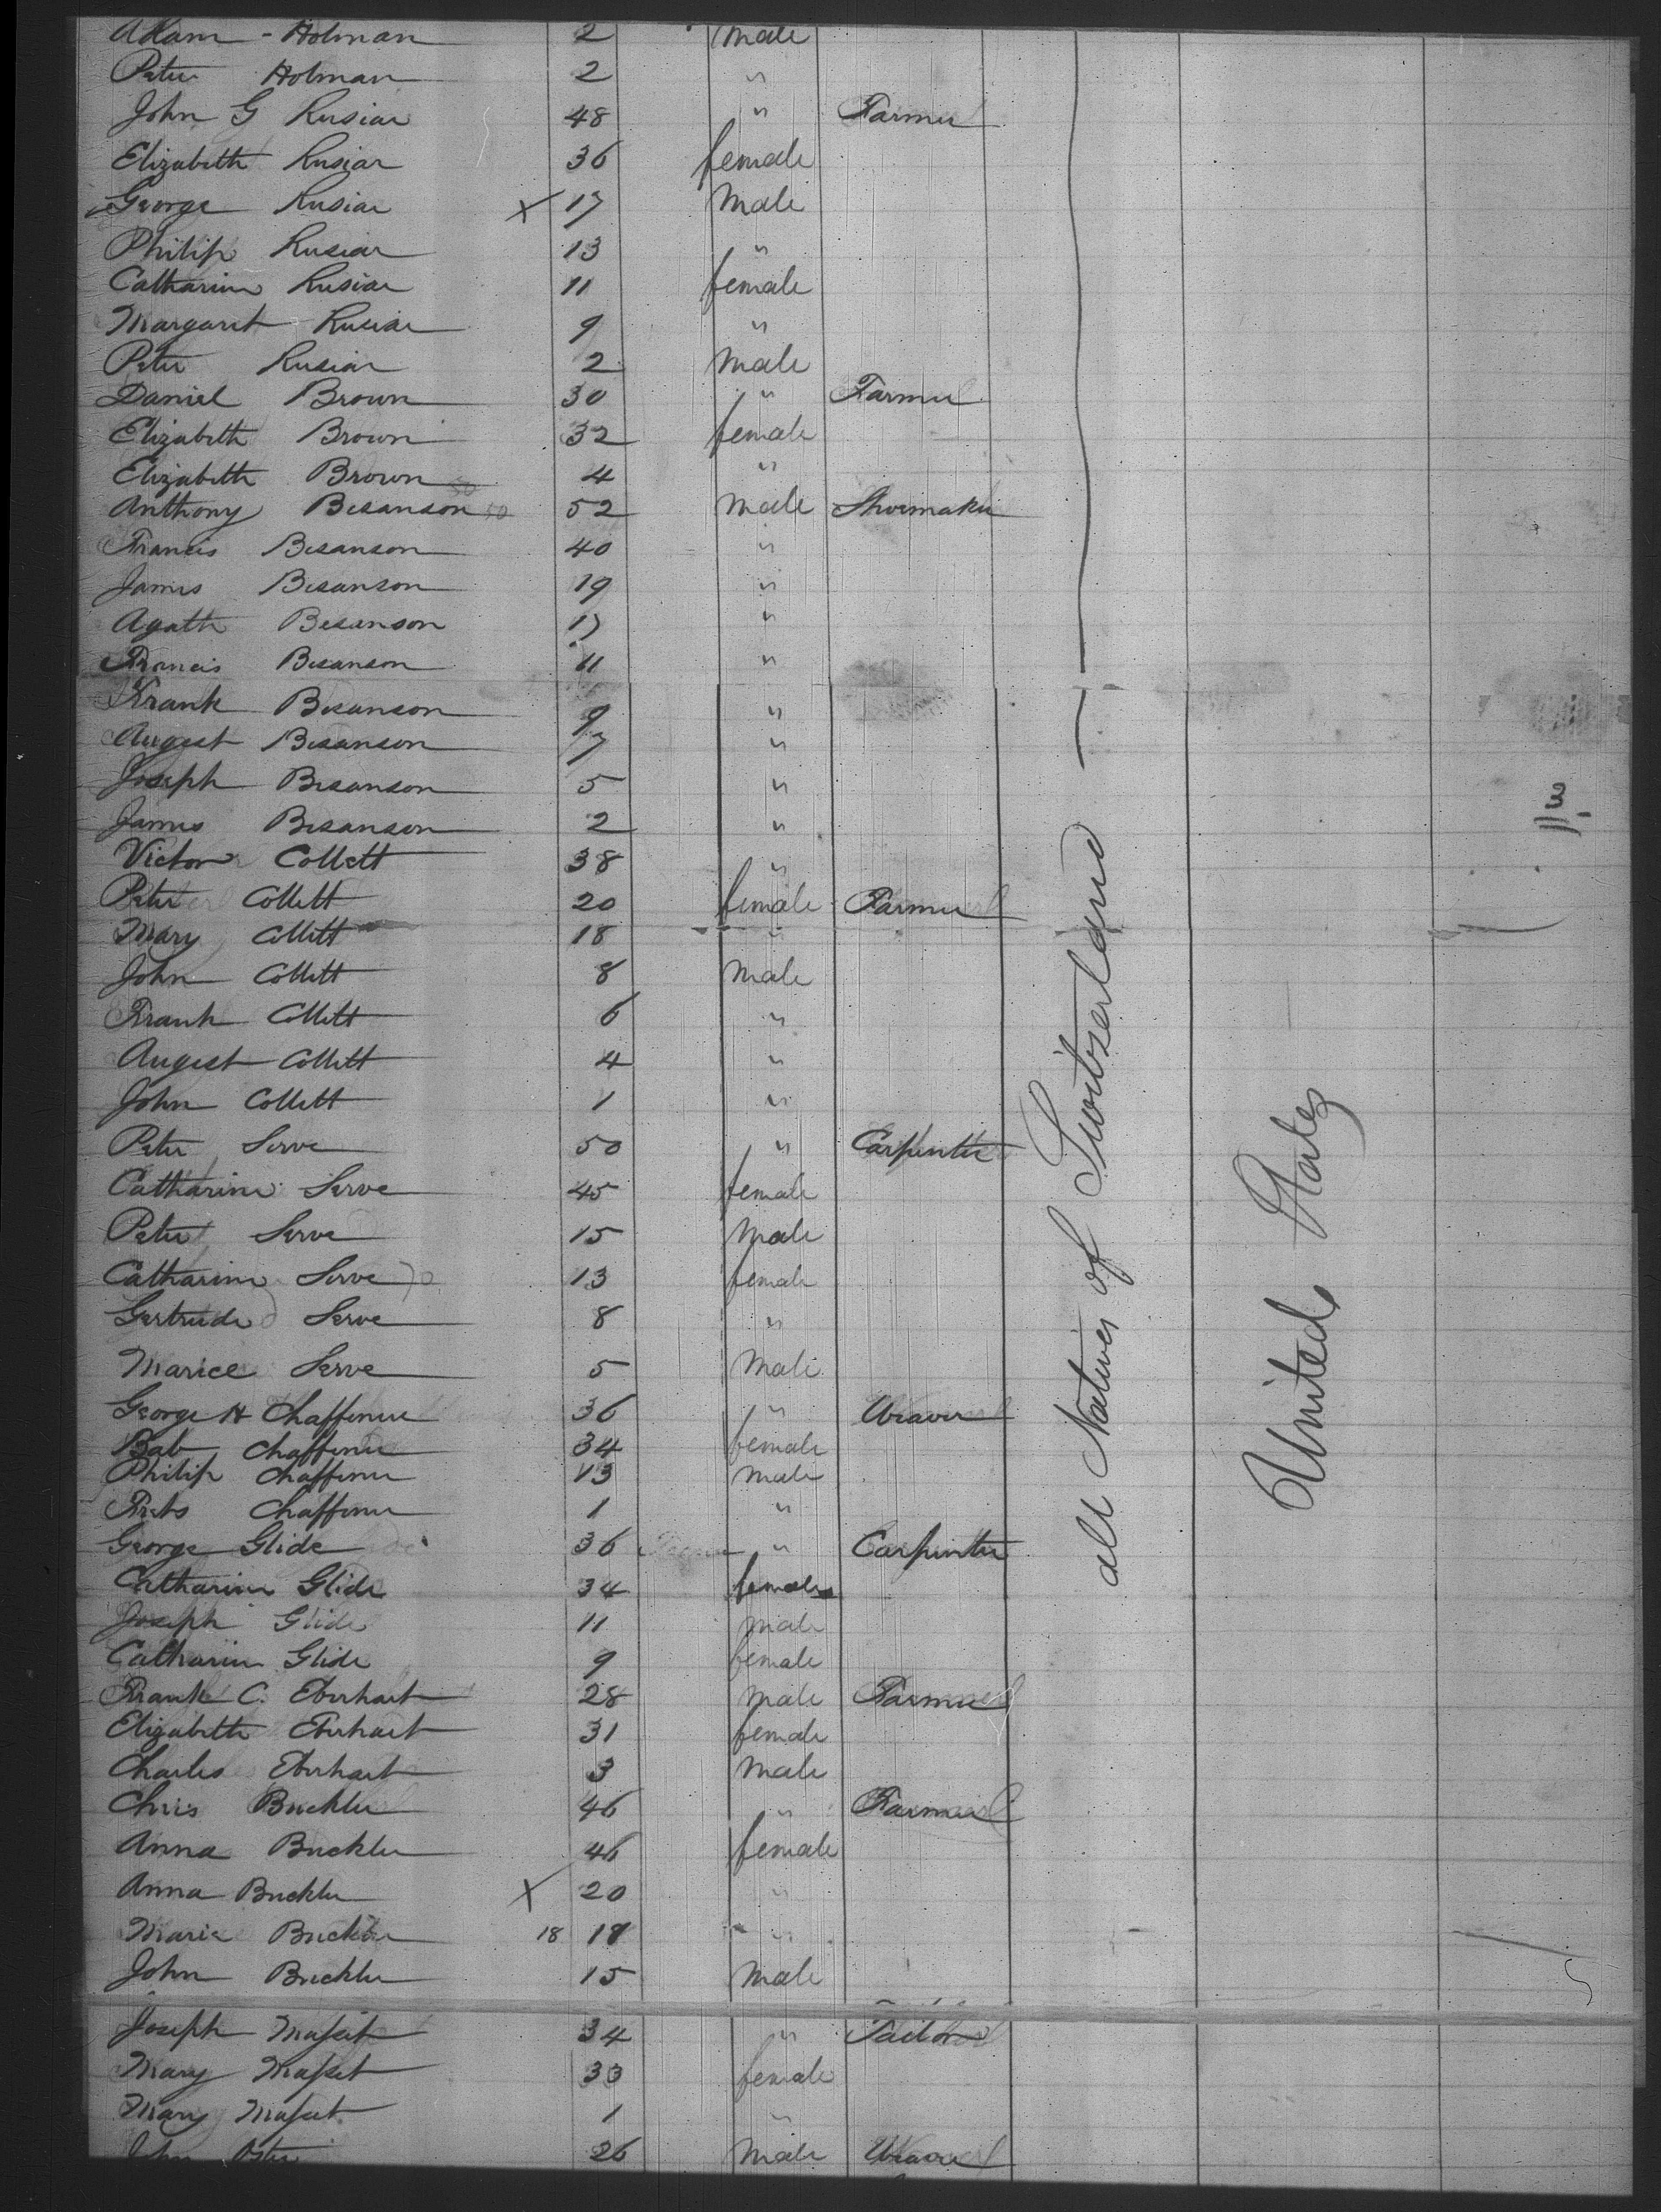 Adam - Holman 2 Male
Peter Holman 2 "
John G Rusiar 48 " Farmer
Elizabeth Rusiar 36 female
George Rusiar X 17 Male
Philip Rusiar 13 "
Catharine Rusiar 11 female
Margaret Rusiar 9 "
Peter Rusiar 2 Male
Daniel Brown 30 " Farmer
Elizabeth Brown 32 female
Elizabeth Brown 4 "
Anthony Besanson 50 52 Male Shoemaker
Francis Besanson 40 "
James Besanson 19 "
Agath Besanson 17 "
Francis Besanson 11 "
Frank Besanson 9 "
August Besanson 7 "
Joseph Besanson 5 "
James Besanson 2 "
Victor Collett 38 "
Peter Collett 20 female Farmer
Mary Collett 18 "
John Collett 8 Male
Frank Collett 6 "
August Collett 4 "
John Collett 1 "
Peter Serve 50 " Carpenter
Catharine Serve 45 female
Peter Serve 15 Male
Catharine Serve 13 female
Gertrude Serve 8 "
Marice Serve 5 Male
George H Chaffener 36 " Weaver
Bab Chaffener 34 female
Philip Chaffener 13 Male
Frets Chaffener 1 "
George Glide 36 " Carpenter
Catharine Glide 34 female
Joseph Glide 11 Male
Catharine Glide 9 female
Frank C. Eberhart 28 Male Farmer
Elizabeth Eberhart 31 female
Charles Eberhart 3 Male
Chris Buckler 46 " Farmer
Anna Buckler 46 female
Anna Buckler X 20 "
Marie Buckler 18 18 "
John Buckler 15 Male
Joseph Masset 34 " Tailor
Mary Masset 33 female
Mary Masset 1 "
John 26 Male Weaver
all Natives of Switzerland
United States
3